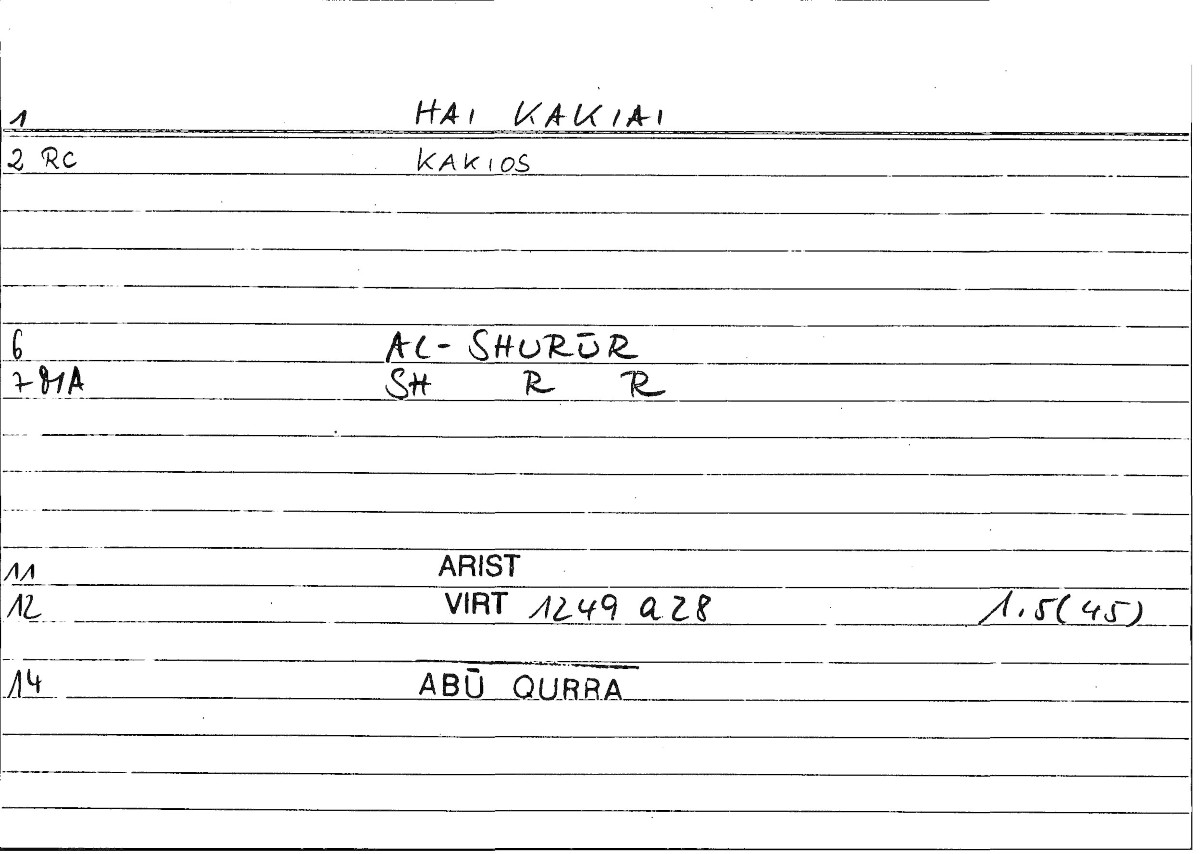 1 HAI KAKIAI
2 RC KAKIOS
6 AL-SHURŪR
7 MA SH R R
11 ARIST
12 VIRT 1249 a 28 1.5(45)
14 ABŪ QURRA